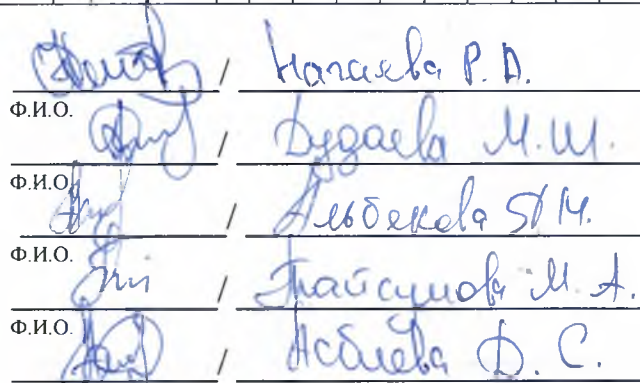 / Нагаева Р. Д.
Ф.И.О.
/ Дудаева М.Ш.
Ф.И.О.
/ Альбекова Я М.
Ф.И.О.
/ Тайсумова М. А.
Ф.И.О.
/ Д. С.